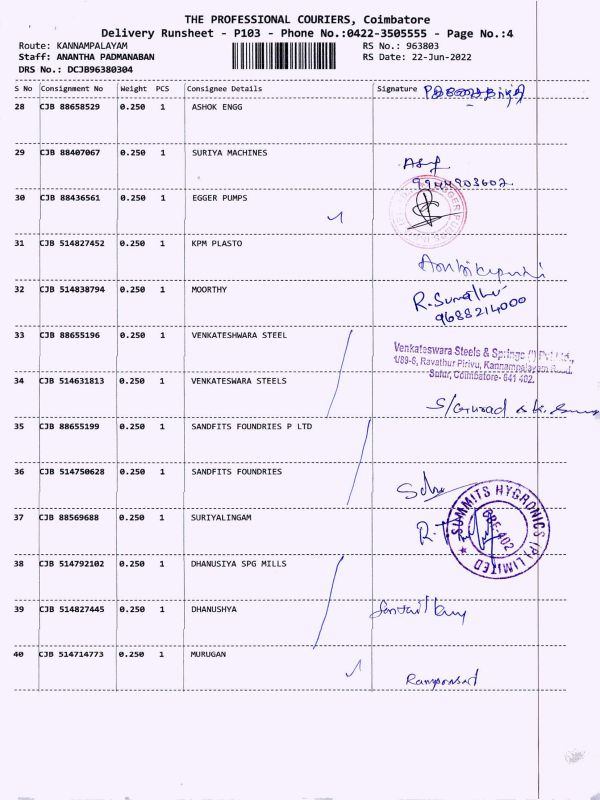 THE PROFESSIONAL COURIERS, Coimbatore
Delivery Runsheet - P103 - Phone No.:0422-3505555 - Page No.:4
Route: KANNAMPALAYAM RS No.: 963803
Staff: ANANTHA PADMANABAN RS Date: 22-Jun-2022
DRS No.: DCJB96380304
S No Consignment No Weight PCS Consignee Details Signature
28 CJB 88658529 0.250 1 ASHOK ENGG
29 CJB 88407067 0.250 1 SURIYA MACHINES
9944903602
30 CJB 88436561 0.250 1 EGGER PUMPS
31 CJB 514827452 0.250 1 KPM PLASTO
32 CJB 514838794 0.250 1 MOORTHY
9688214000
33 CJB 88655196 0.250 1 VENKATESHWARA STEEL
Venkateswara Steels & Springs (I) Pvt Ltd.,
1/89-6, Ravathur Pirivu, Kannampalayam Road,
Sulur, Coimbatore- 641 402.
34 CJB 514631813 0.250 1 VENKATESWARA STEELS
35 CJB 88655199 0.250 1 SANDFITS FOUNDRIES P LTD
36 CJB 514750628 0.250 1 SANDFITS FOUNDRIES
37 CJB 88569688 0.250 1 SURIYALINGAM
SUMMITS HYGRONICS (P) LIMITED
CBE-402
38 CJB 514792102 0.250 1 DHANUSIYA SPG MILLS
39 CJB 514827445 0.250 1 DHANUSHYA
40 CJB 514714773 0.250 1 MURUGAN
Ramprasad